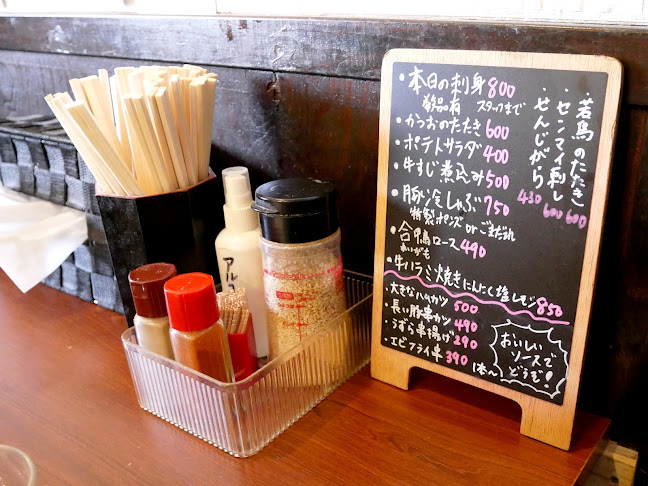 ・本日の刺身 800
単品有 スタッフまで
・かつおのたたき 600
・ポテトサラダ 400
・牛すじ煮込み 500
・豚冷しゃぶ 750
特製ポンズ or ごまだれ
・合鴨ロース 490
あいがも
・牛ハラミ焼き にんにく塩レモン 850
・大きなハムカツ 500
・長い豚串カツ 490
・うずら串揚げ 290
・エビフライ串 390 (1本〜)
・若鳥のたたき 600
・センマイ刺し 600
・せんじがら 430
おいしい
ソースで
どうぞ!
アルコ